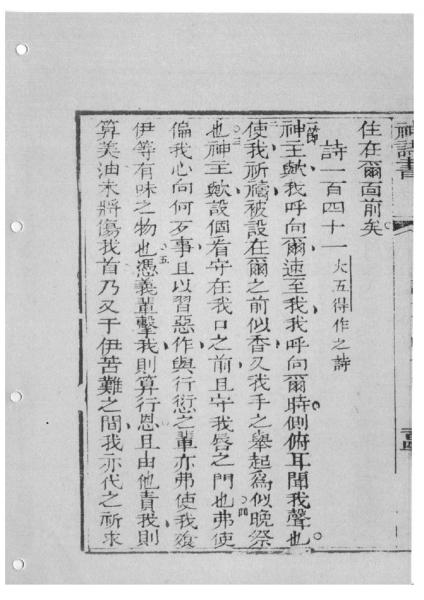 神詩書
住在爾面前矣
詩一百四十一 大五得作之詩
一節
神主歟我呼向爾速至我我呼向爾時側俯耳聞我聲也
二
使我祈禱被設在爾之前似香又我手之舉起為似晚祭
三
也神主歟設個看守在我口之前且守我唇之門也弗使
四
偏我心向何歹事且以習惡作與行愆之輩亦弗使我飡
伊等有味之物也憑義輩擊我則算行恩且由他責我則
五
算美油未將傷我首乃又于伊苦難之間我亦代之祈求